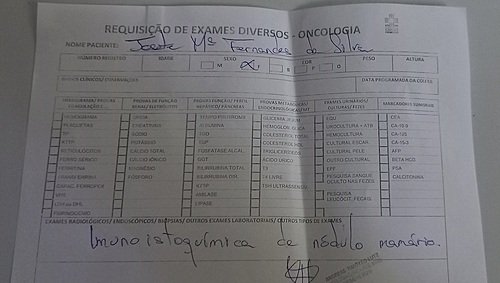 REQUISIÇÃO DE EXAMES DIVERSOS - ONCOLOGIA
NOME PACIENTE: Mª Fernandes da Silva
NÚMERO REGISTRO IDADE SEXO COR PESO ALTURA
M F B P O
DADOS CLÍNICOS/ OBSERVAÇÕES DATA PROGRAMADA DA COLETA
HEMOGRAMA/ PROVAS PROVAS DE FUNÇÃO PROVAS FUNÇÃO/ PERFIL PROVAS METABÓLICAS/ EXAMES URINÁRIOS/ MARCADORES TUMORAIS
HEPÁTICO/ PÂNCREAS CULTURAIS/ FEZES
HEMOGRAMA UREIA TEMPO PROTROMB GLICEMIA JEJUM EQU CEA
PLAQUETAS CREATININA ALBUMINA HEMOGLOB. GLICA UROCULTURA + ATB CA-19.9
TP SÓDIO TGO COLESTEROL TOTAL UROCULTURA CA-125
KTTP POTÁSSIO TGP COLESTEROL HDL CULTURAL ESCAR. CA-15.3
RETICULÓCITOS CÁLCIO TOTAL FOSFATASE ALCAL. TRIGLICERÍDEOS CULTURAL PELE AFP
FERRO SÉRICO CÁLCIO IÔNICO GGT ÁCIDO ÚRICO OUTRO CULTURAL BETA HCG
FERRITINA MAGNÉSIO BILIRRUBINA TOTAL T3 EPF PSA
TRANSFERRINA FÓSFORO BILIRRUBINA DSL T4 LIVRE PESQUISA SANGUE OCULTO NAS FEZES CALCITONINA
CAPAC. FERROPEX KTTP TSH ULTRASSENS.
VHS AMILASE PESQUISA LEUCÓCIT. FECAIS
LDH ou DHL LIPASE
FIBRINOGÊNIO
EXAMES RADIOLÓGICOS/ ENDOSCÓPICOS/ BIÓPSIAS/ OUTROS EXAMES LABORATORIAIS/ OUTROS TIPOS DE EXAMES
Imunoistoquímica de nódulo mamário.